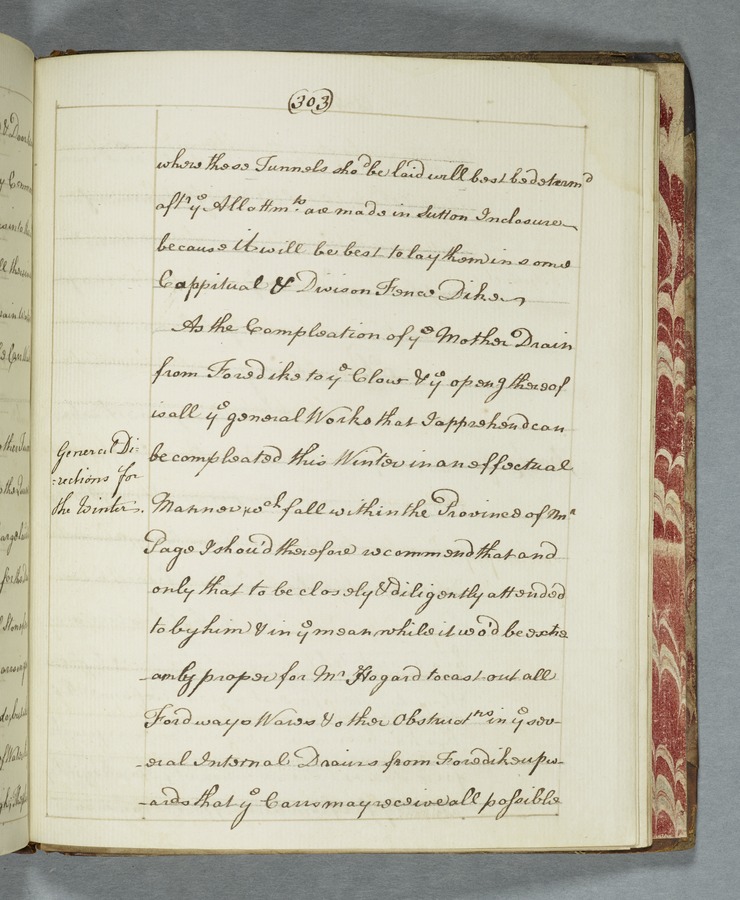 303
where these Tunnels sho'd be laid will best be determ'd
aft'r y'e Allottm'ts are made in Sutton Inclosure
because it will be best to lay them in some
Cappitual & Divison Fence Dike
As the Compleation of y'e Mother Drain
from Foredike to y'e Clow & y'e open'g thereof
is all y'e general Works that I apprehend can
General Di=
=rections for
the Winter.
be compleated this Winter in an effectual
Manner, w'ch fall within the Province of M'r
Page I shou'd therefore recommend that and
only that to be closely & diligently attended
to by him & in y'e mean while it wo'd be extre
-amly proper for M'r Hogard to cast out all
Fordways Wares & other Obstruct'ns in y'e sev-
-eral Internal Drains from Foredike upw-
-ards that y'e Carrs may receive all possible